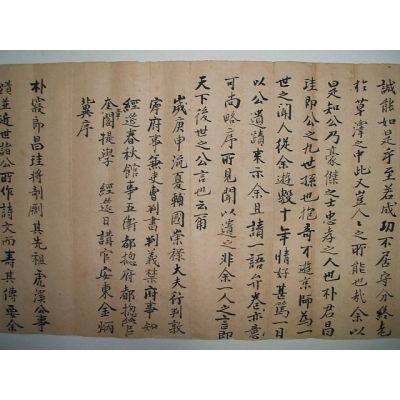 誠能如是乎至若成功不居守分終老
於草澤之中此又豈人之所能也哉余以
是知公乃豪傑之士忠孝之人也朴君昌
珪即公之九世孫也抱奇不遊京師爲一
世之聞人從余遊數十年情好甚篤一日
以公遺蹟來示余且請一語弁卷亦意
可尚略序所見聞以遺之非余一人之言即
天下後世之公言也云爾
歲庚申流夏輔國崇祿大夫行判敦
寧府事兼吏曹判書判義禁府事知
經筵春秋館事五衛都摠府都摠管
奎閣提學 經筵日講官安東金炳
冀序
朴郎昌珪將剞劂其先祖虎溪公事
蹟並近世諸公所作詩文而壽其傳要余